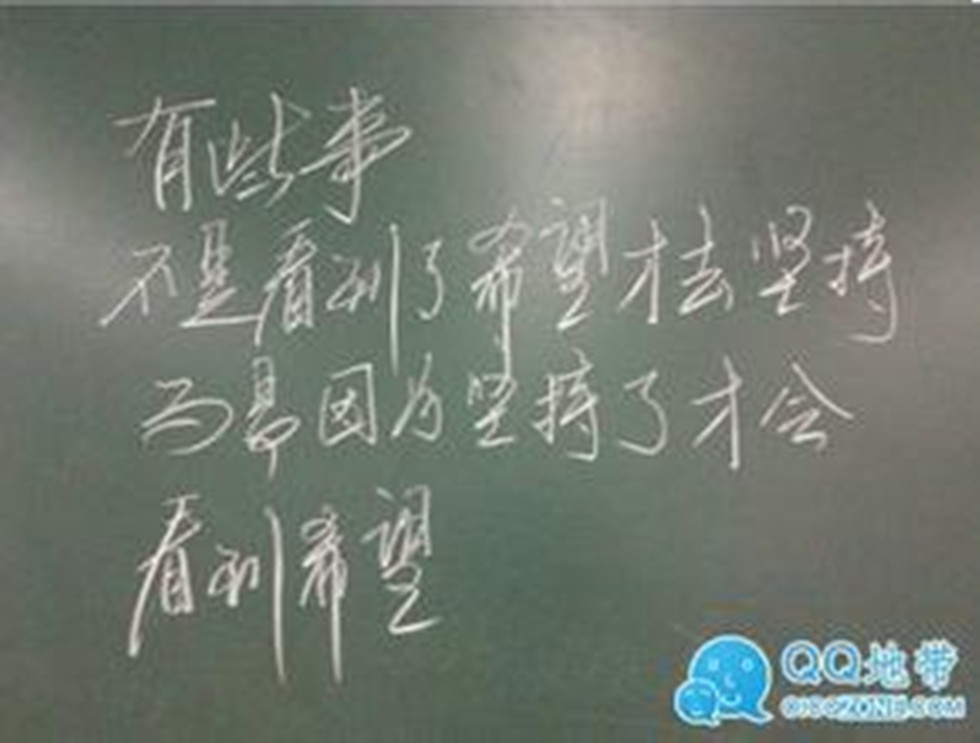 有些事
不是看到了希望才去坚持
而是因为坚持了才会
看到希望
QQ地带